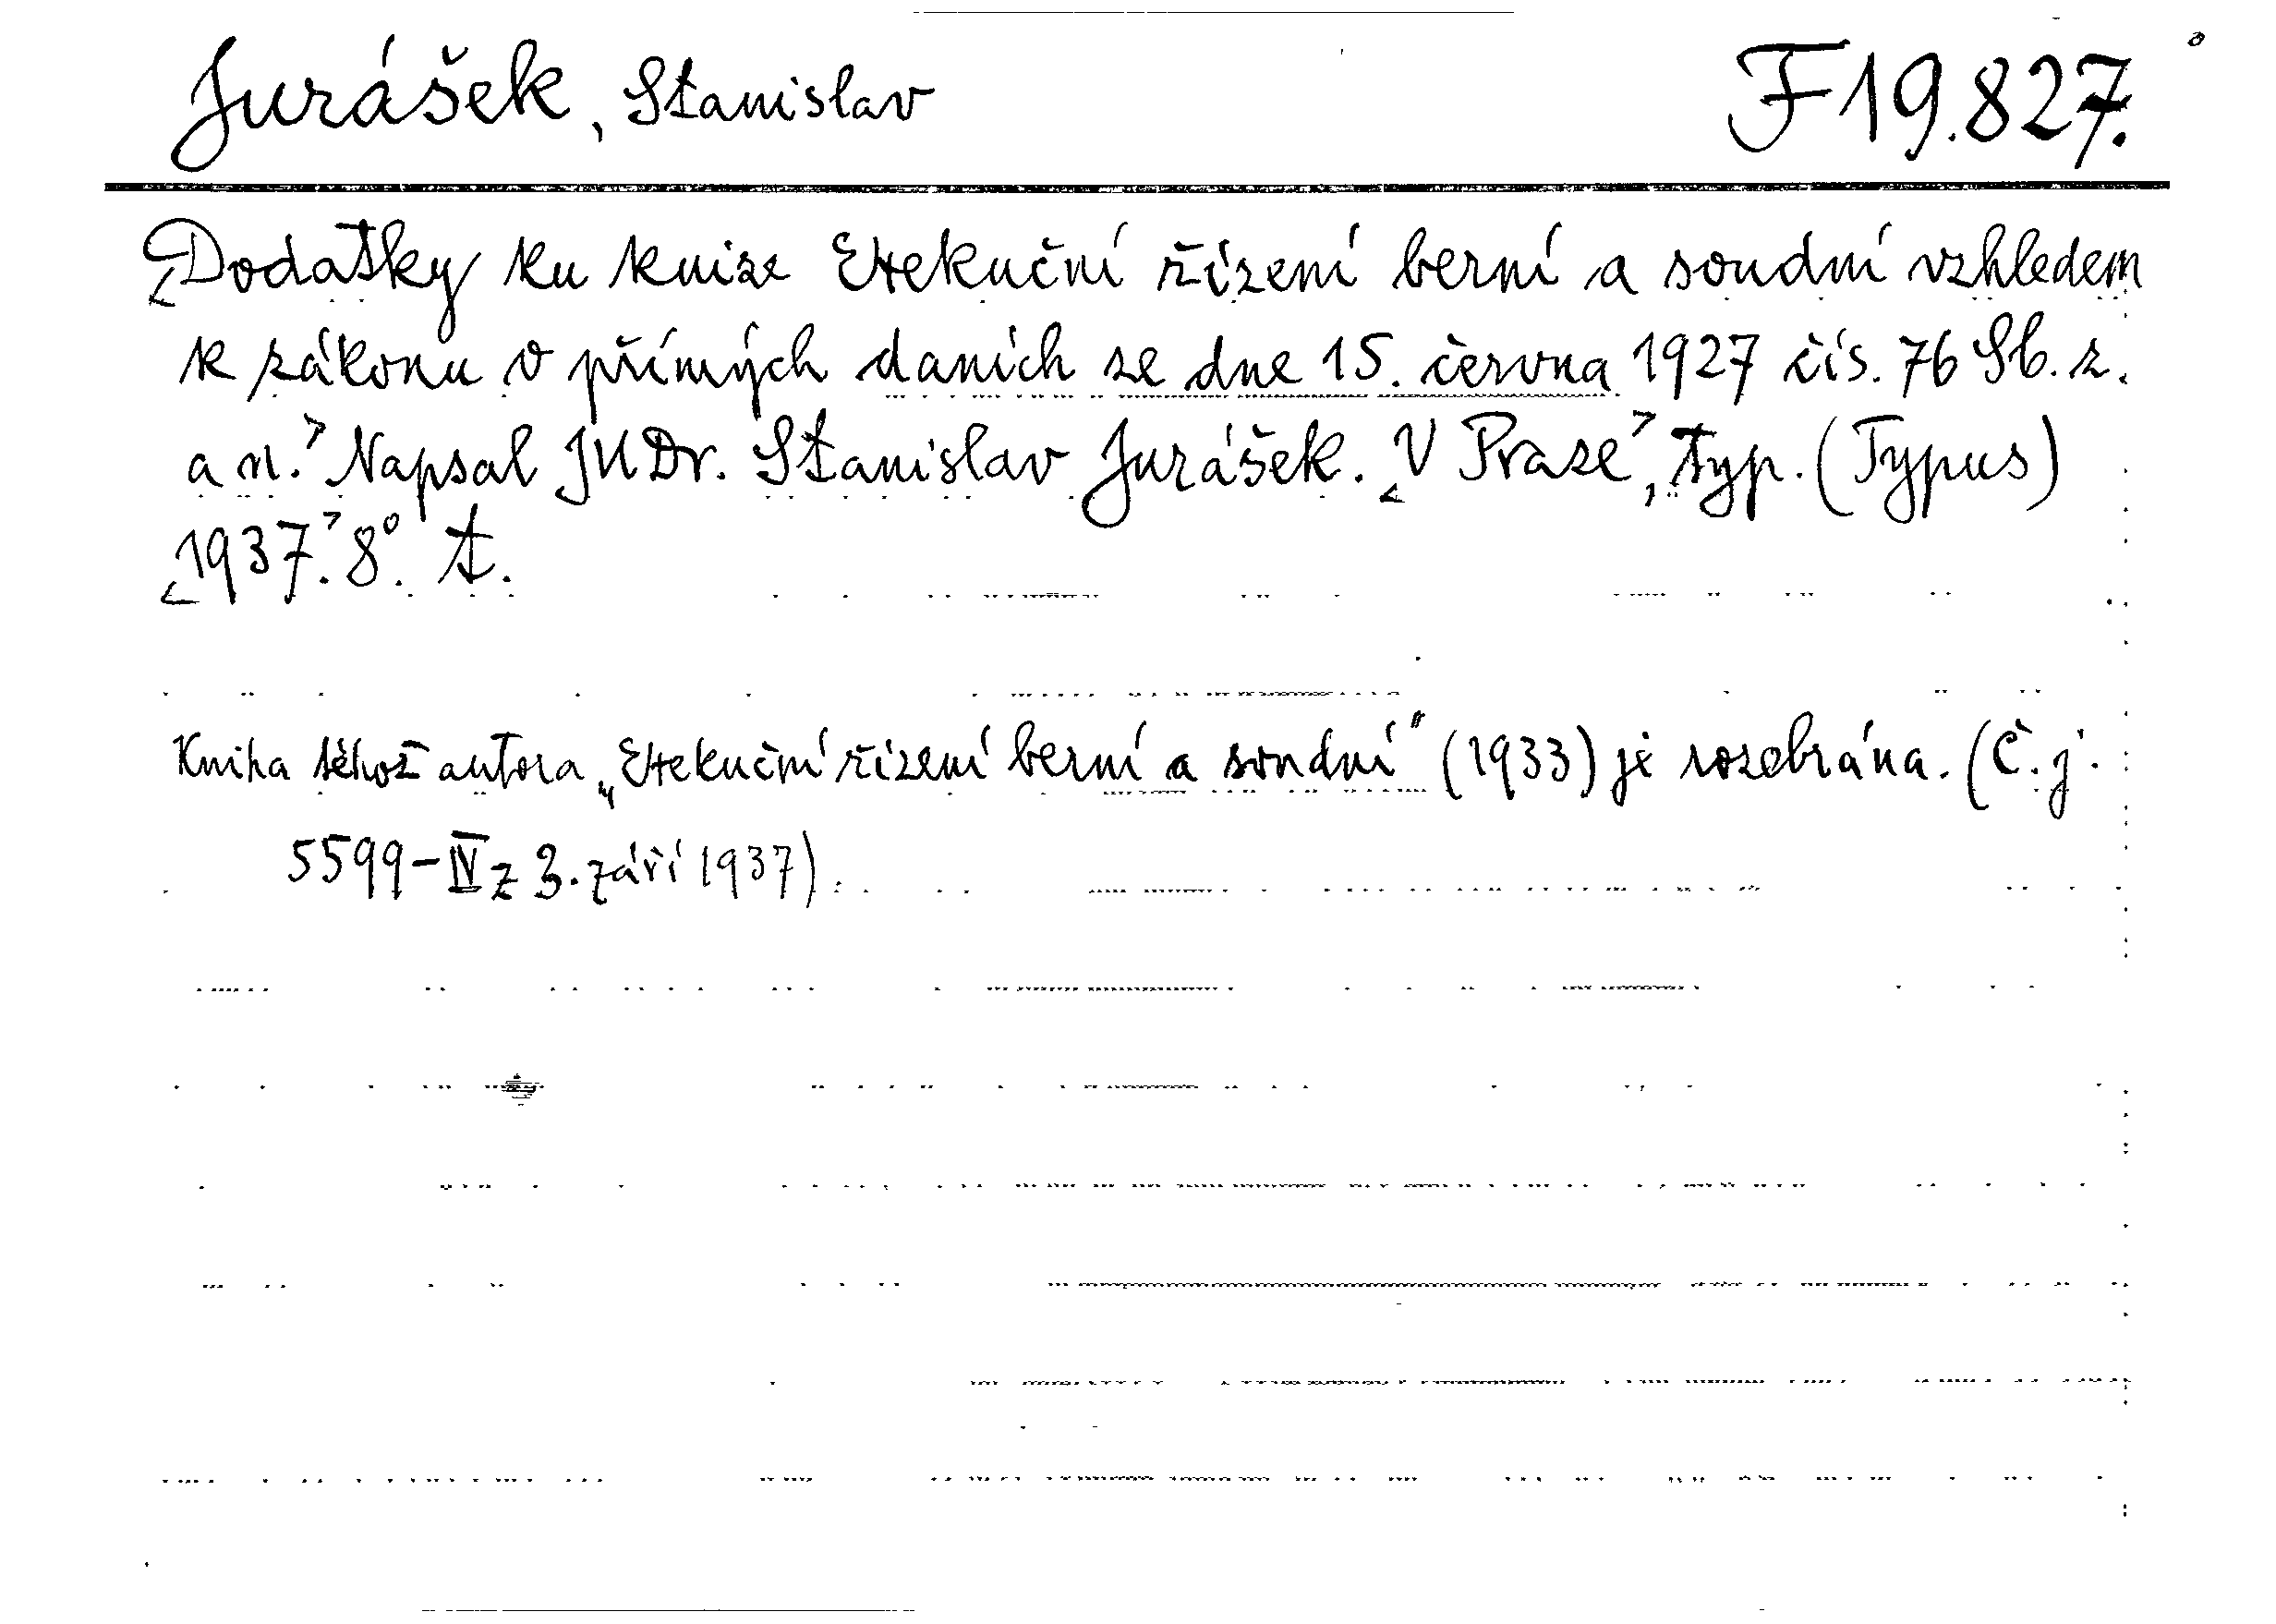 Jurášek, Stanislav F 19.827.
<Dodatky ku knize Exekuční řízení berní a soudní vzhledem
k zákonu o přímých daních ze dne 15. června 1927 čís. 76 Sb. z.
a n.> Napsal JUDr. Stanislav Jurášek. <V Praze>, typ. (Typus)
<1937.> 8°. A.
Kniha téhož autora „Exekuční řízení berní a soudní" (1933) je rozebrána. (Č. j.
5599-IV z 3. září 1937).